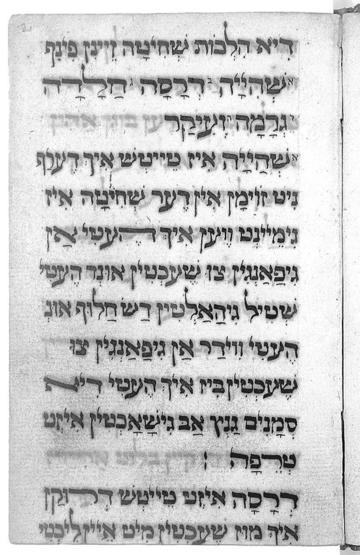 דִיא הִלְכוֹת שְׁחִיטָה זַיְינֶן פִינְף
שְׁהִיָיה דְרָסָה חֲלָדָה
גְרָמָה וְעִיקָר
שְׁהִיָיה אִיז טַייטְשׁ אִיךְ דֶערְף
נִיט זוֹיְמִן אִין דֶער שְׁחִיטָה אִיז
גִימֵיינְט וֶוען אִיךְ הֶעטִי אָן
גִיפַאנְגִין צוּ שֶׁעכְטִין אוּנְד הֶעטִי
שְׁטִיל גִיהַאלְטִין דַשׁ חַלוּף אוּנ
הֶעטִי וִוידֶר אָן גִיפַאנְגִין צוּ
שֶׁעכְטִין בִּיז אִיךְ הֶעטִי דִיא
סִמָנִים גַנְץ אַב גִישָׁאכְטִין אִיזְט
טְרֵפָה :
דְרָסָה אִיזְט טַייטְשׁ דְרוּקִן
אִיךְ מוּז שֶׁעכְטִין מִיט אַיינְלִיכְטִי